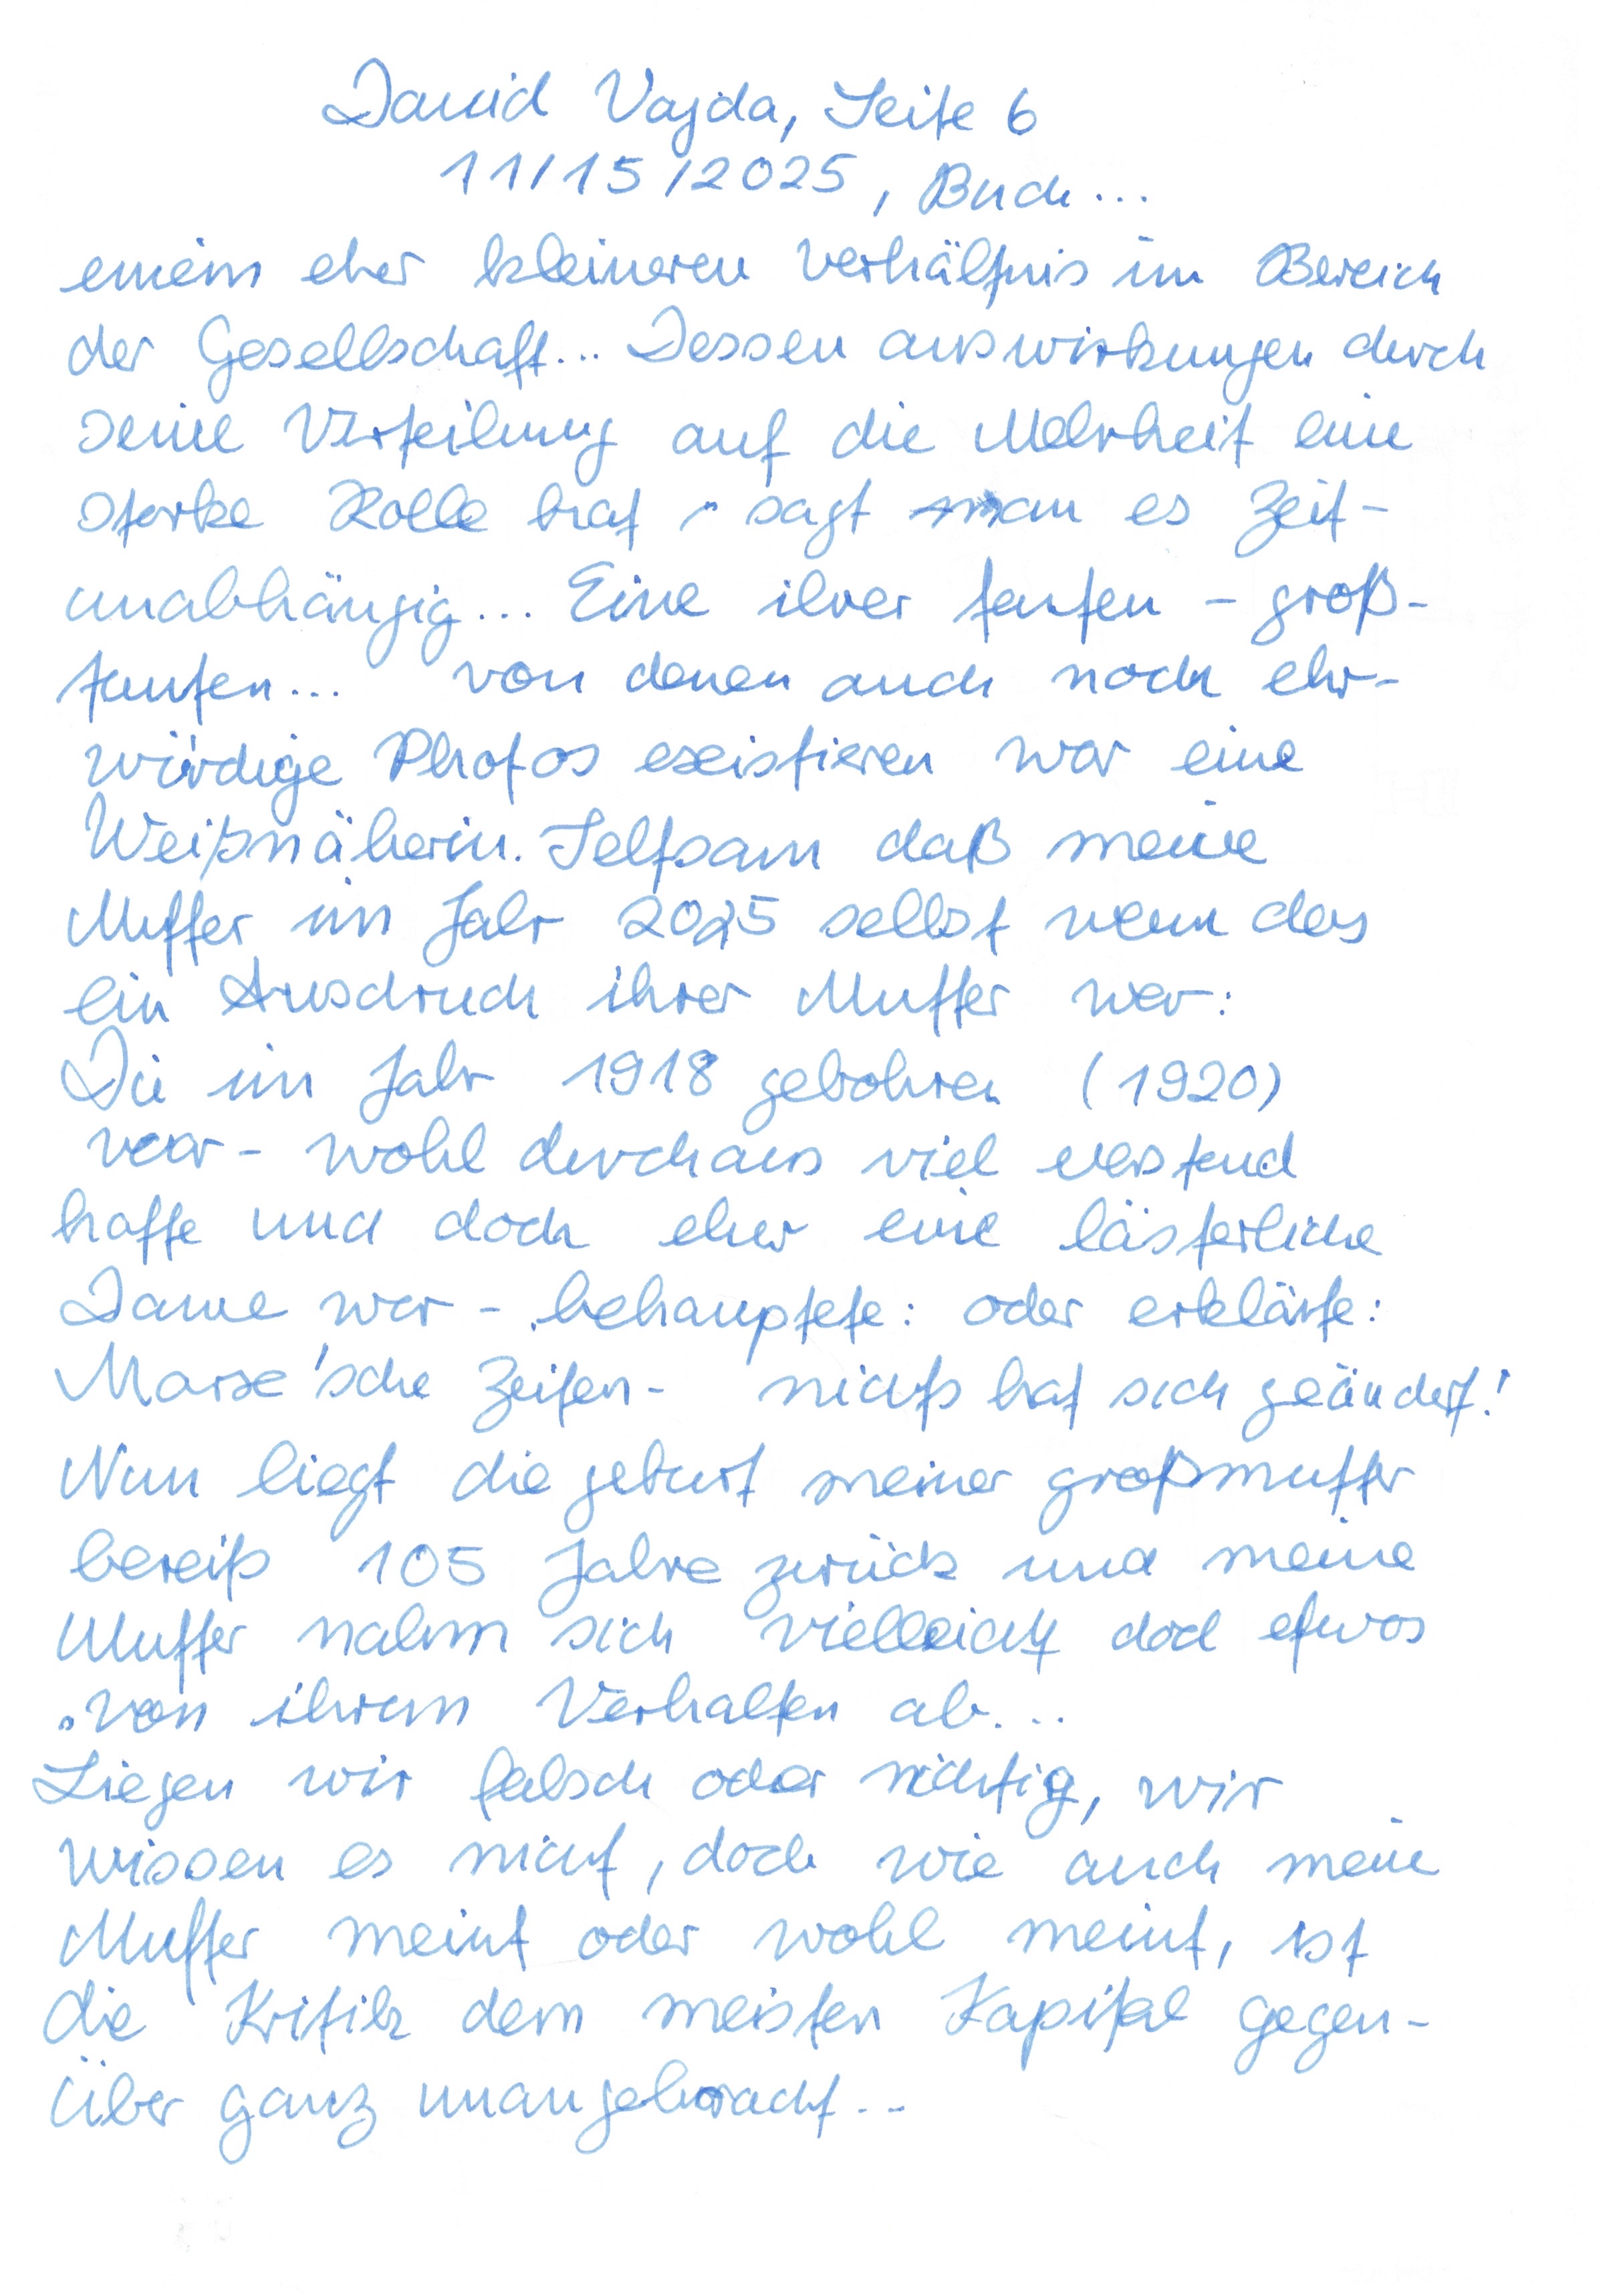 David Vajda, Seite 6
11/15/2025, Buch...
einem eher kleineren Verhältnis im Bereich
der Gesellschaft... Dessen auswirkungen durch
seine Verteilung auf die Mehrheit eine
starke Rolle hat, sagt man es Zeit-
unabhängig... Eine ihrer tanten - groß-
tanten... von denen auch noch ehr-
würdige Photos existieren war eine
Weißnäherin. Seltsam daß meine
Mutter im Jahr 2025 selbst wenn das
ein Ausdruck ihrer Mutter war:
Die im Jahr 1918 gebohren (1920)
war - wohl durchaus viel verstand
hatte und doch eher eine lästerliche
Dame war - behauptete: oder erklärte:
Marx'sche Zeiten - nichts hat sich geändert!
Nun liegt die geburt meiner großmutter
bereits 105 Jahre zurück und meine
Mutter nahm sich vielleicht doch etwas
von ihrem Verhalten ab...
Liegen wir falsch oder richtig, wir
wissen es nicht, doch wie auch meine
Mutter meint oder wohl meint, ist
die Kritik dem meisten Kapital gegen-
über ganz unangebracht...